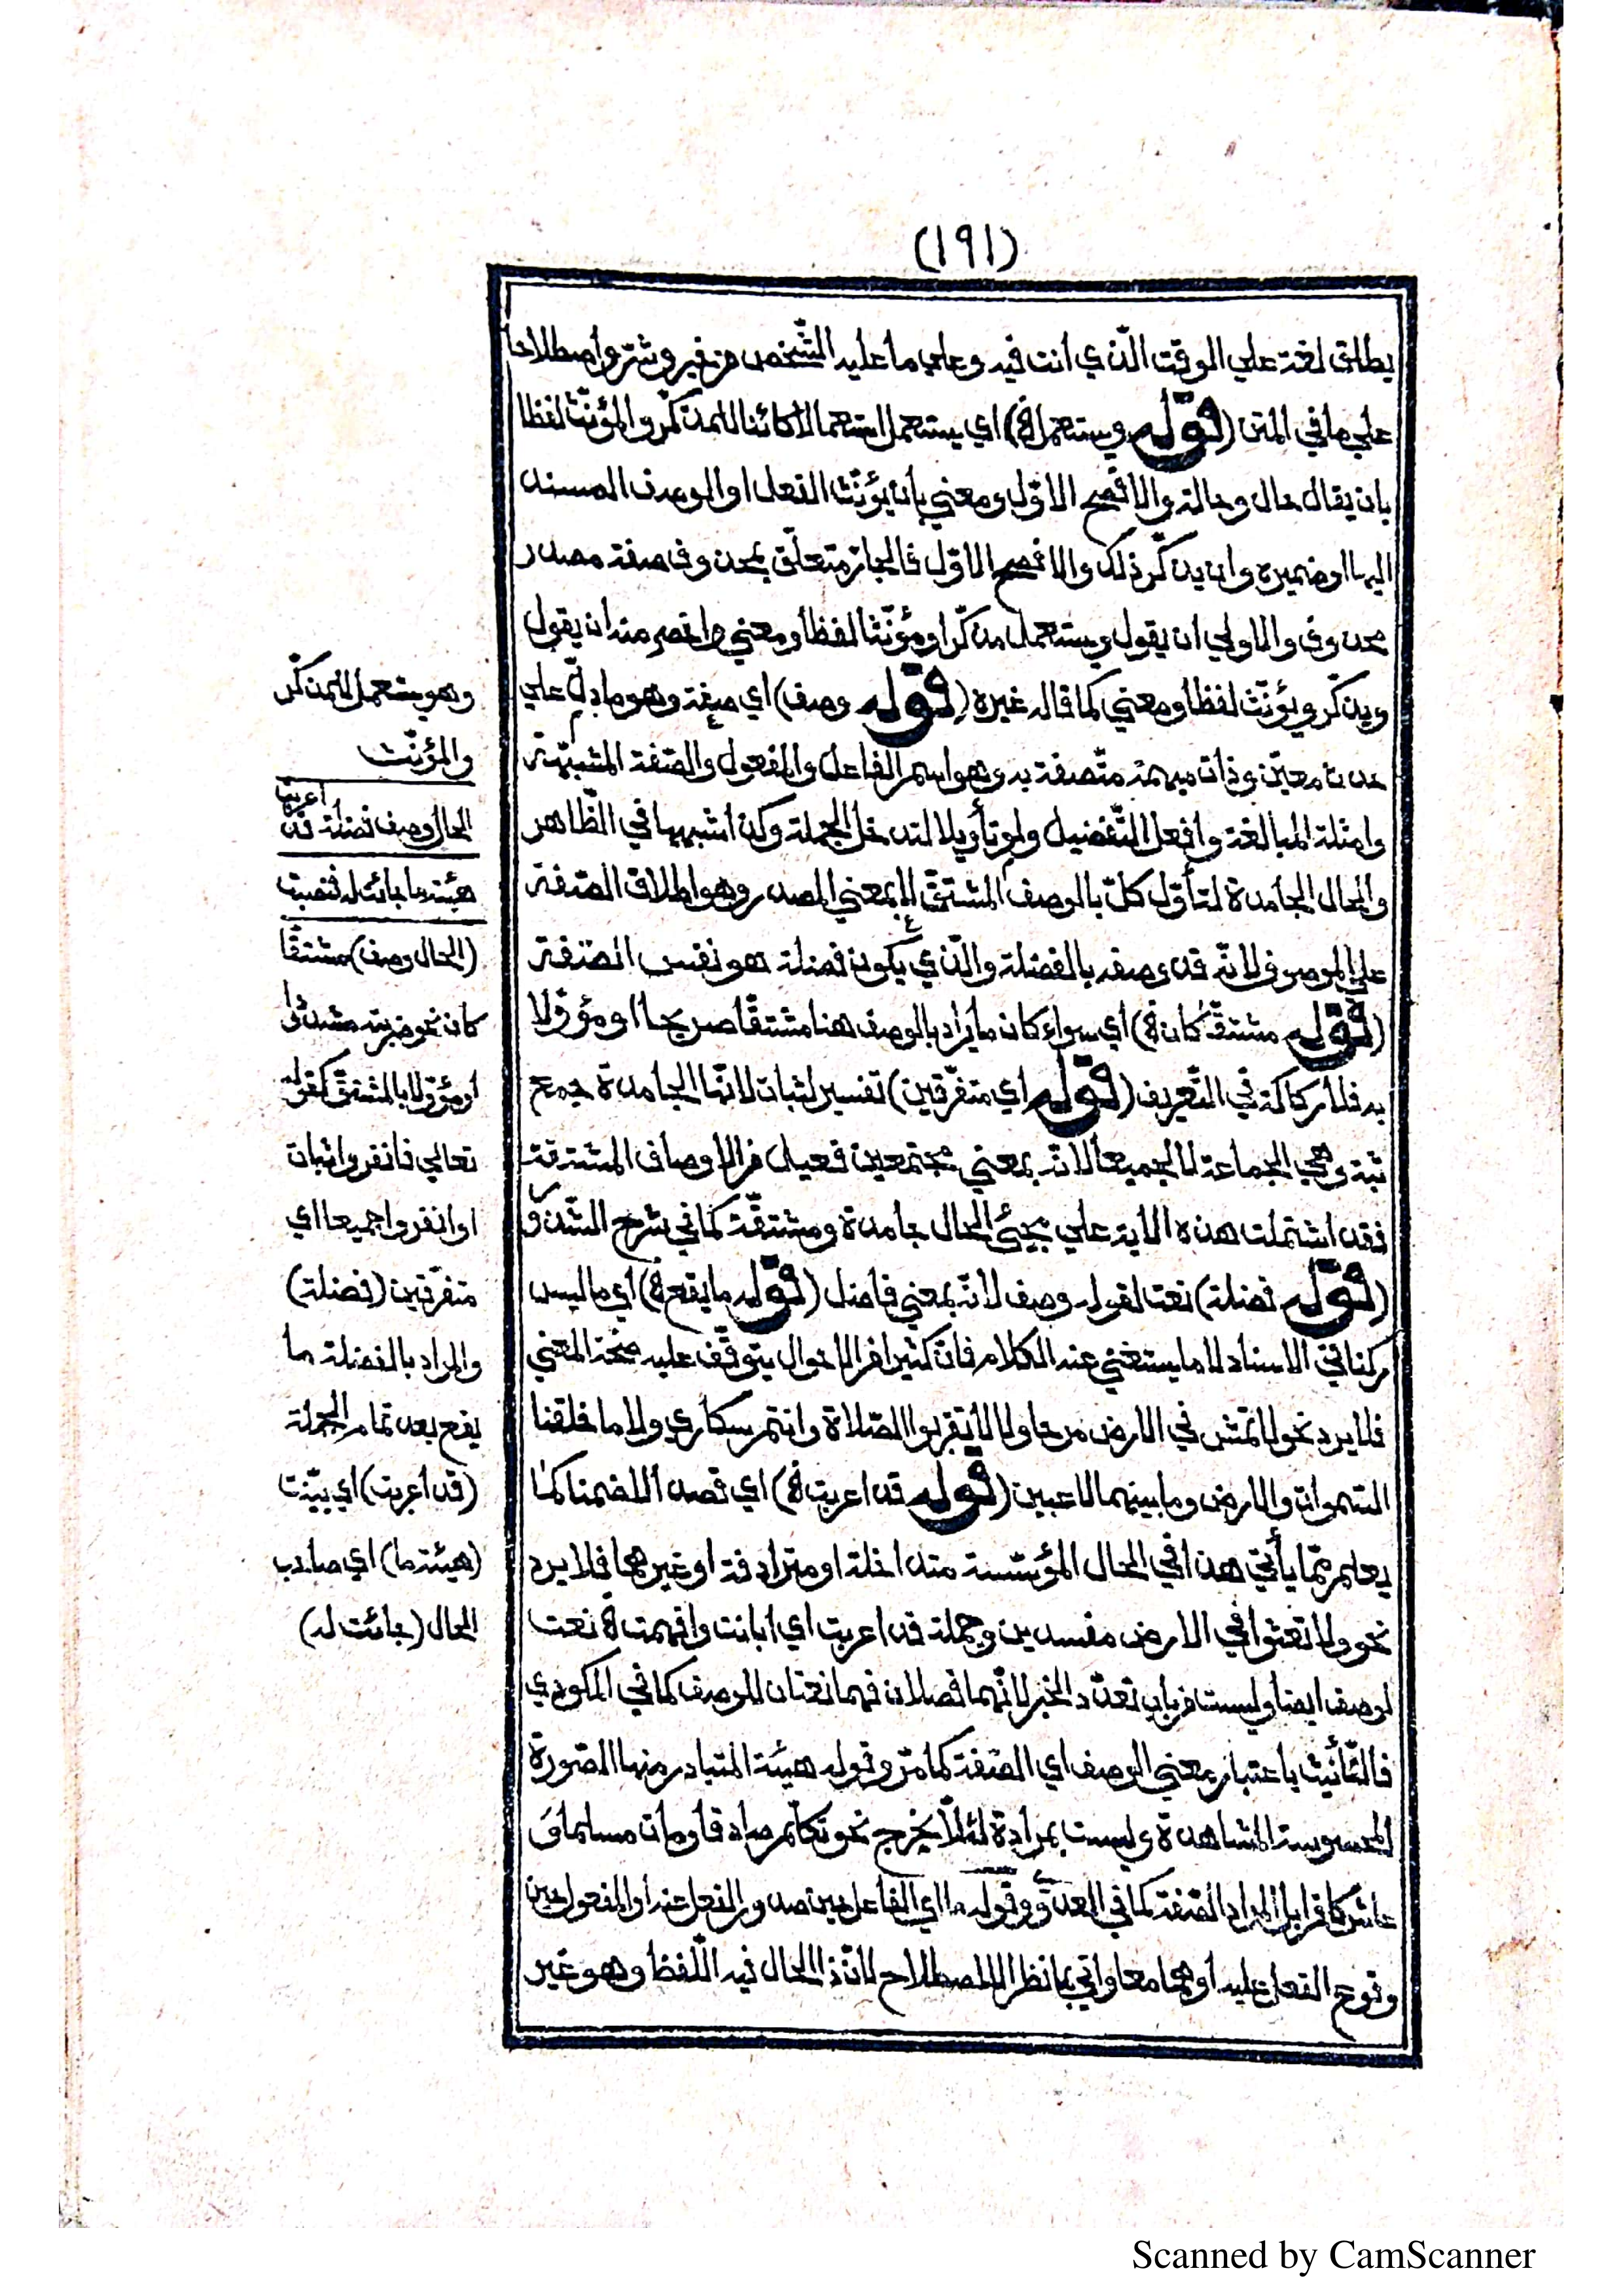 (١٩١)
يطلق لغة علي الوقت الّذي انت فيه وعلي ما عليه الشّخص من خير وشرّ واصطلاحا
علي ما في المتن (قوله ويستعمل ۿ) اي يستعمل استعمالا كائنا للمذكّر والمؤنّث لفظا
بان يقال حال وحالة والافصح الاوّل ومعني بان يؤنّث الفعل او الوصف المسند
اليها او ضميره وان يذكّر ذلك والافصح الاوّل فالجارّ متعلّق بمحذوف صفة مصدر
محذوف والاولي ان يقول ويستعمل مذكّرا ومؤنّثا لفظا ومعني واخصر منه ان يقول
ويذكّر ويؤنّث لفظا ومعني كما قال غيره (قوله وصف) اي صيغة وهو ما دلّ علي
حدث معيّن وذات مبهمة متّصفة به وهو اسم الفاعل والمفعول والصّفة المشبّهة
وامثلة المبالغة وافعل التّفضيل ولو تأويلا لتدخل الجملة وكذا شبهها في الظّاهر
والحال الجامدة لتأوّل كلّ بالوصف المشتقّ لا بمعني المصدر وهو اطلاق الصّفة
علي الموصوف لانّه قد وصفه بالفضلة والّذي يكون فضلة هو نفس الصّفة
(قوله مشتقّا كان ۿ) اي سواء كان ما يراد بالوصف هنا مشتقّا صريحا او مؤوّلا
به فلا ركاكة في التّعريف (قوله اي متفرّقين) تفسير لثبات لانّها الجامدة جمع
ثبة وهي الجماعة لا لجميعا لانّه بمعني مجتمعين فعيل من الاوصاف المشتقّة
فقد اشتملت هذه الاية علي مجيئ الحال جامدة ومشتقّة كما في شرح الشّذور
(قوله فضلة) نعت لقوله وصف لانّه بمعني فاضل (قوله ما يقع ۿ) اي ما ليس
ركنا في الاسناد لا ما يستغني عنه الكلام فانّ كثيرا من الاحوال يتوقّف عليه صحّة المعني
فلا يرد نحو لا تمش في الارض مرحا ولا لا تقربوا الصّلاة وانتم سكاري ولا ما خلقنا
السّموات والارض وما بينهما لاعبين (قوله قد اعربت ۿ) اي قصدا لا ضمنا كما
يعلم ممّا يأتي هذا في الحال المؤسّسة متداخلة او مترادفة او غيرهما فلا يرد
نحو ولا تعثوا في الارض مفسدين وجملة قد اعربت اي ابانت وافهمت ۿ نعت
لوصف ايضا وليست من باب تعدّد الخبر لانّهما فصلان فهما نعتان للوصف كما في المكودي
فالتّأنيث باعتبار معني الوصف اي الصّفة كما مرّ وقوله هيئة المتبادر منها الصّورة
المحسوسة المشاهدة وليست بمرادة لئلّا يخرج نحو تكلّم صادقا ومات مسلما و
عاش كافرا بل المراد الصّفة كما في وقوله ما اي الفاعل حين صدور الفعل عنه او المفعول حين
وقوع الفعل عليه او هما معا واتي بما نظرا للاصطلاح لانّ ذا الحال فيه اللّفظ وهو غير
وهو يستعمل للمذكّر
والمؤنّث
الحال وصف فضلة قد اعربت
هيئة ما جائت له فنصبت
(الحال وصف) مشتقّا
كان نحو ضربته مشدودا
او مؤوّلا بالمشتقّ كقوله
تعالي فانفروا ثبات
او انفروا جميعا اي
متفرّقين (فضلة)
والمراد بالفضلة ما
يقع بعد تمام الجملة
(قد اعربت) اي بيّنت
(هيئة ما) اي صاحب
الحال (جائت له)
Scanned by CamScanner